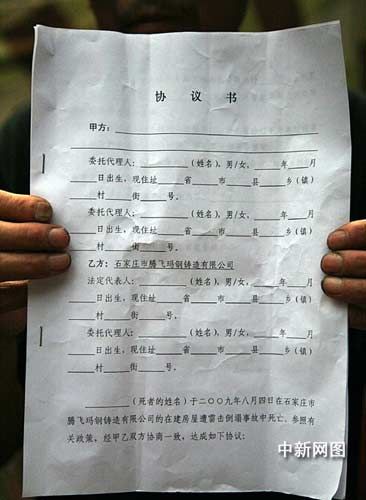 协 议 书
甲方：
委托代理人：______（姓名），男/女，____年____月
____日出生，现住址____省____市____县____乡（镇）
____村____街____号。
委托代理人：______（姓名），男/女，____年____月
____日出生，现住址____省____市____县____乡（镇）
____村____街____号。
乙方：石家庄市腾飞玛钢铸造有限公司
法定代表人：______（姓名），男/女，____年____月
____日出生，现住址____省____市____县____乡（镇）
____村____街____号。
委托代理人：______（姓名），男/女，____年____月
____日出生，现住址____省____市____县____乡（镇）
____村____街____号。
______（死者的姓名）于二〇〇九年八月四日在石家庄市
腾飞玛钢铸造有限公司的在建房屋遭雷击倒塌事故中死亡。参照有
关政策，经甲乙双方协商一致，达成如下协议：
中新网图